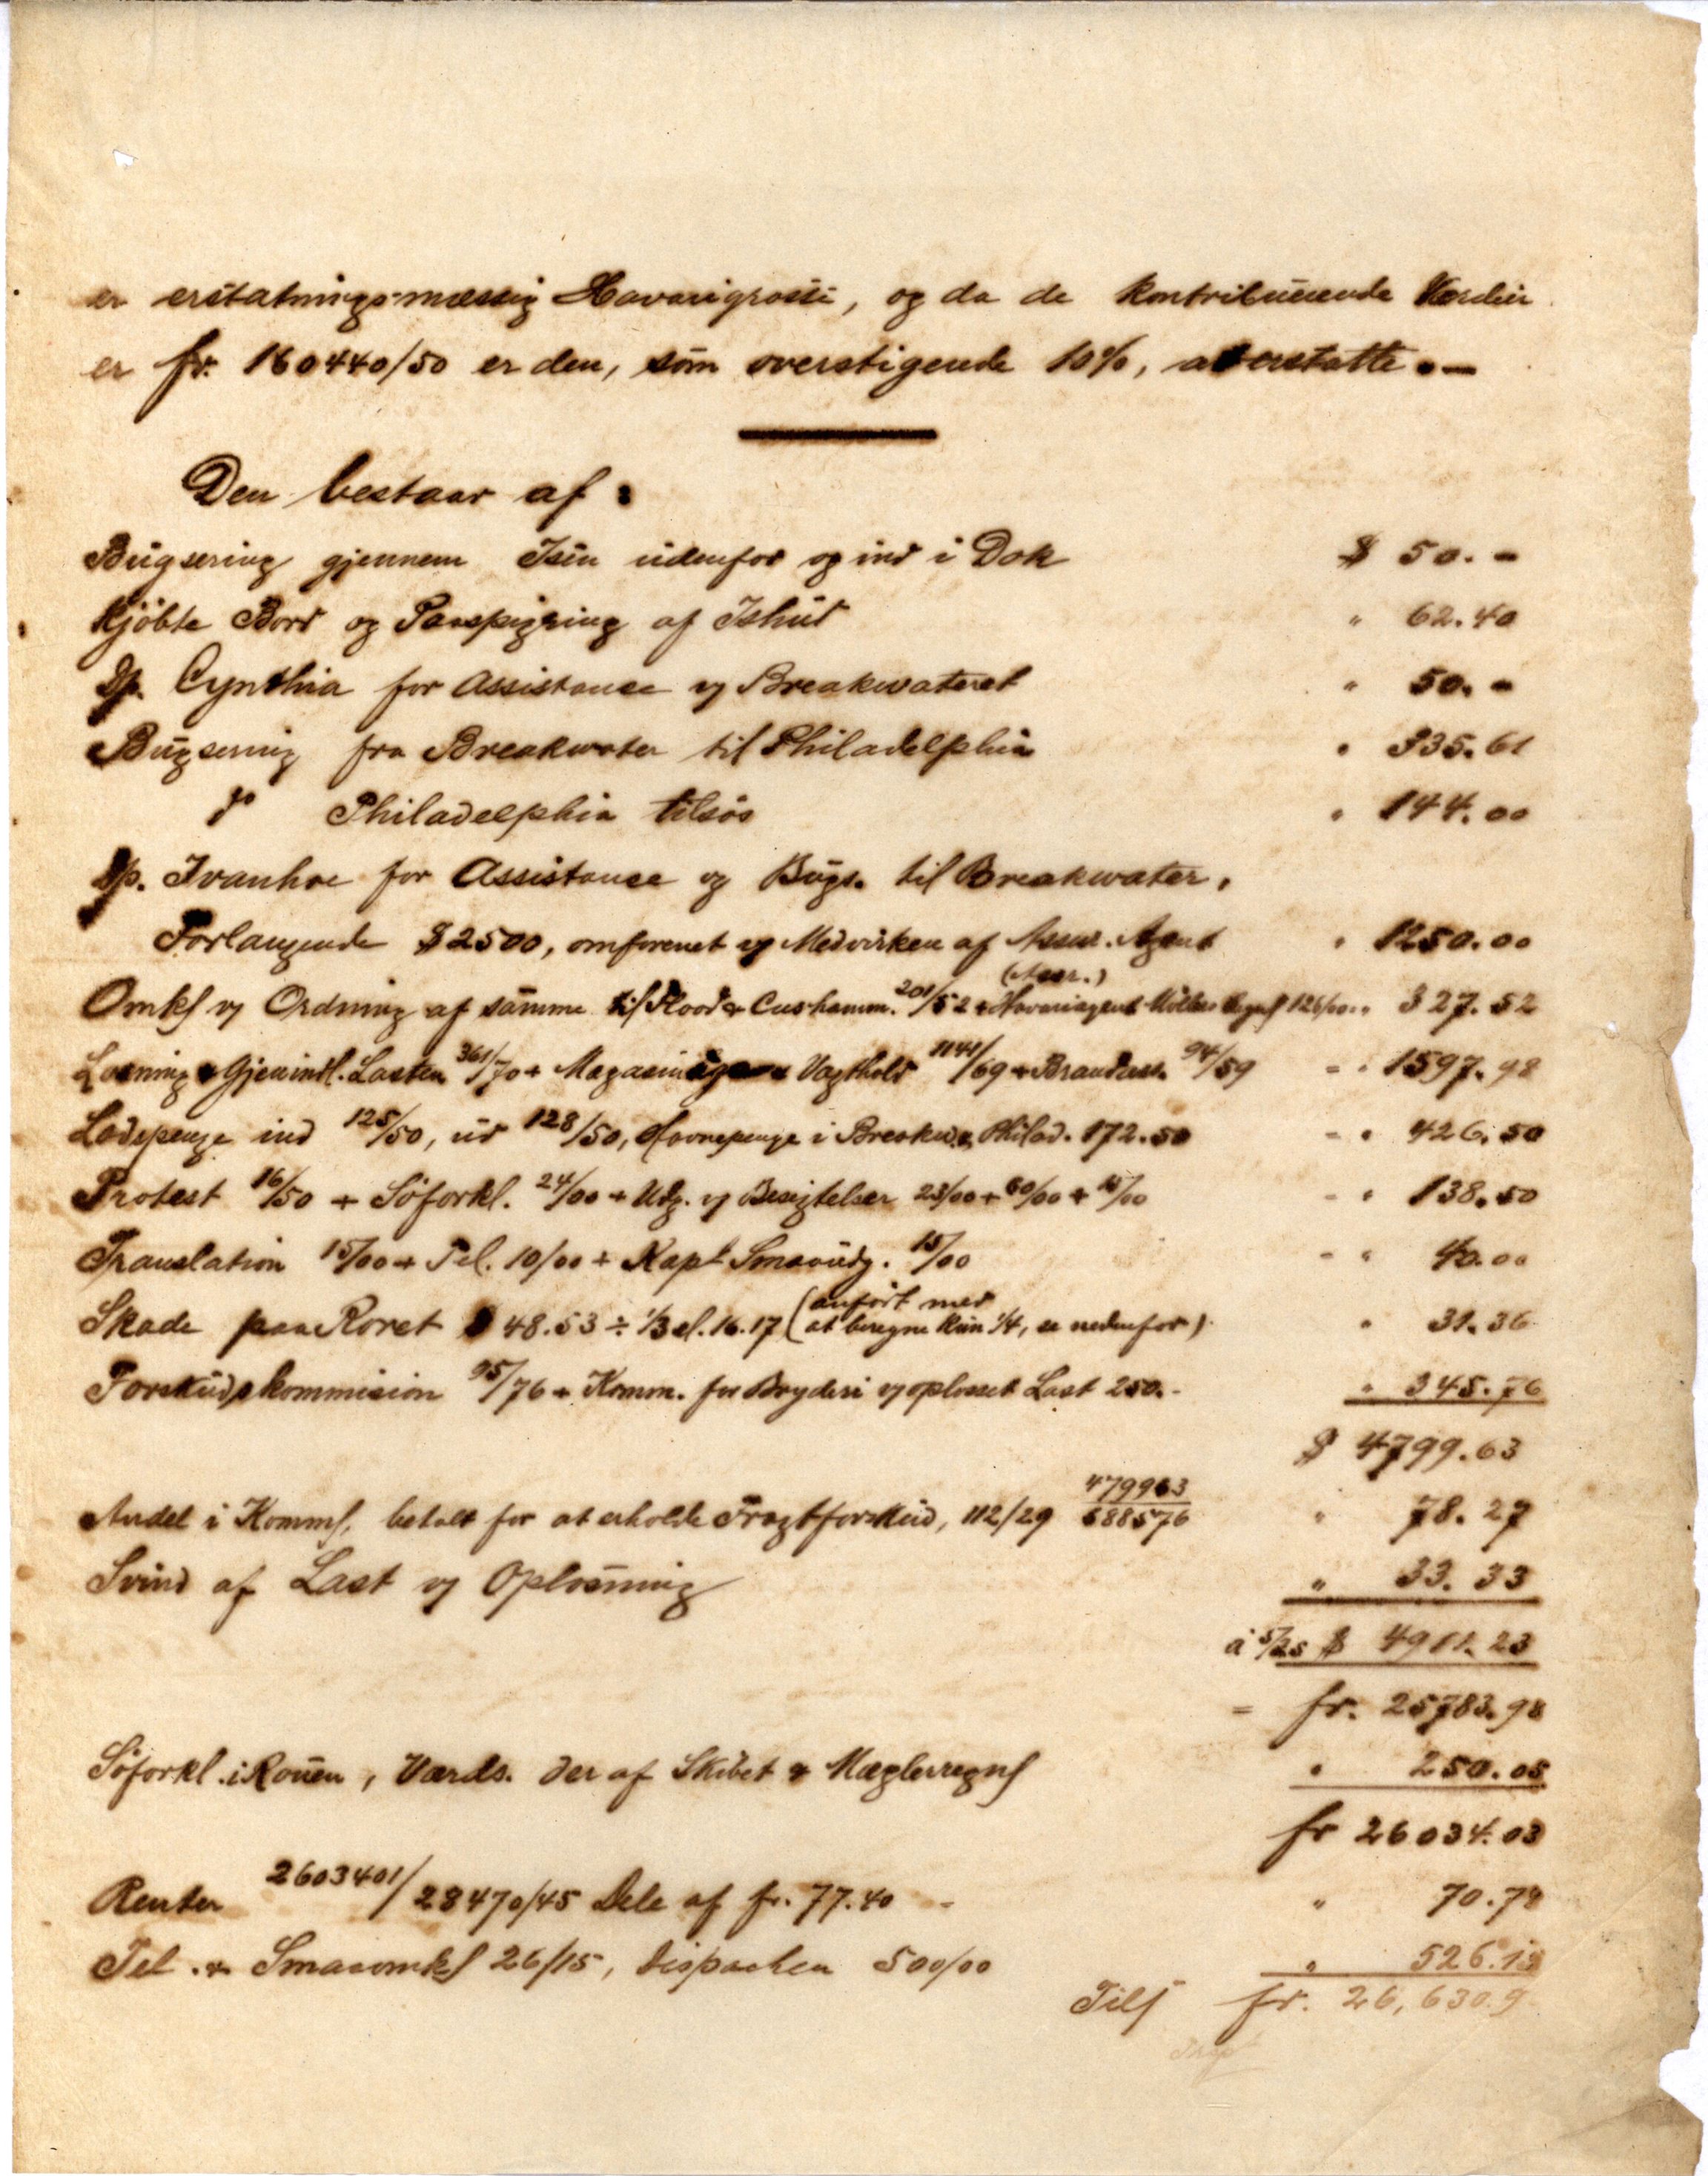 er erstatningsmæssig Havarigrosse, og da de kontribuerende Værdier
er fr. 160440/50 er den, som overstigende 10%, at erstatte. —
Den bestaar af:
Bugsering gjennem Isen udenfor og ind i Dok $ 50. -
Kjöbte Bord og Paaspigring af Ishud " 62.40
Dp. Cynthia for Assistance og Breakwateret " 50. -
Bugsering fra Breakwater til Philadelphia " 335.61
Do Philadelphia tilsös " 144.00
Dp. Ivanhoe for Assistance og Bugs. til Breakwater,
Forlangende $2500, omforenet og Medvirken af Assur. Agent " 1250.00
Omks og Ordning af samme til Flood & Cushamm. 201/52 + Havariagent (Assr.) Möllers Regns 126/00 " 327.52
Losning & Gjenindl. Lasten 361/70 + Magasin & Vagthold 1141/69 + Brandass. 94/59 - " 1597.98
Lodspenge ind 125/50, ud 128/50, Havnepenge i Breakw. & Philad. 172.50 - " 426.50
Protest 16/50 + Söforkl. 24/00 + Udg. og Besigtelser 23/00 + 60/00 + 15/00 - " 138.50
Translation 15/00 + Tel. 10/00 + Kapt Smaaudg. 15/00 - " 40.00
Skade paa Roret $ 48.53 ÷ 1/3 el. 16.17 (anfört med
at beregne kun 1/4, se nedenfor) " 31.36
Forskudskommision 95/76 + Komm. for Bryderi og oplosset Last 250.- " 345.76
$ 4799.63
Andel i Komms, betalt for at erholde Fragtforskud, 112/29 479963/688576 " 78.27
Svind af Last og Oplosning " 33.33
à 5/25 $ 4911.23
= fr. 25783.98
Söforkl. i Rouen, Værds. der af Skibet & Mæglerregns " 250.05
fr 26034.03
Renter 2603401/28470/45 Dele af fr. 77.40 - " 70.78
Tel. & Smaaomks 26/15, Dispachen 500/00 " 526.15
Tils fr. 26,630.9